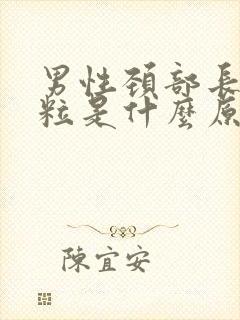 男性頚部長
粒是什麼原
陳宜安